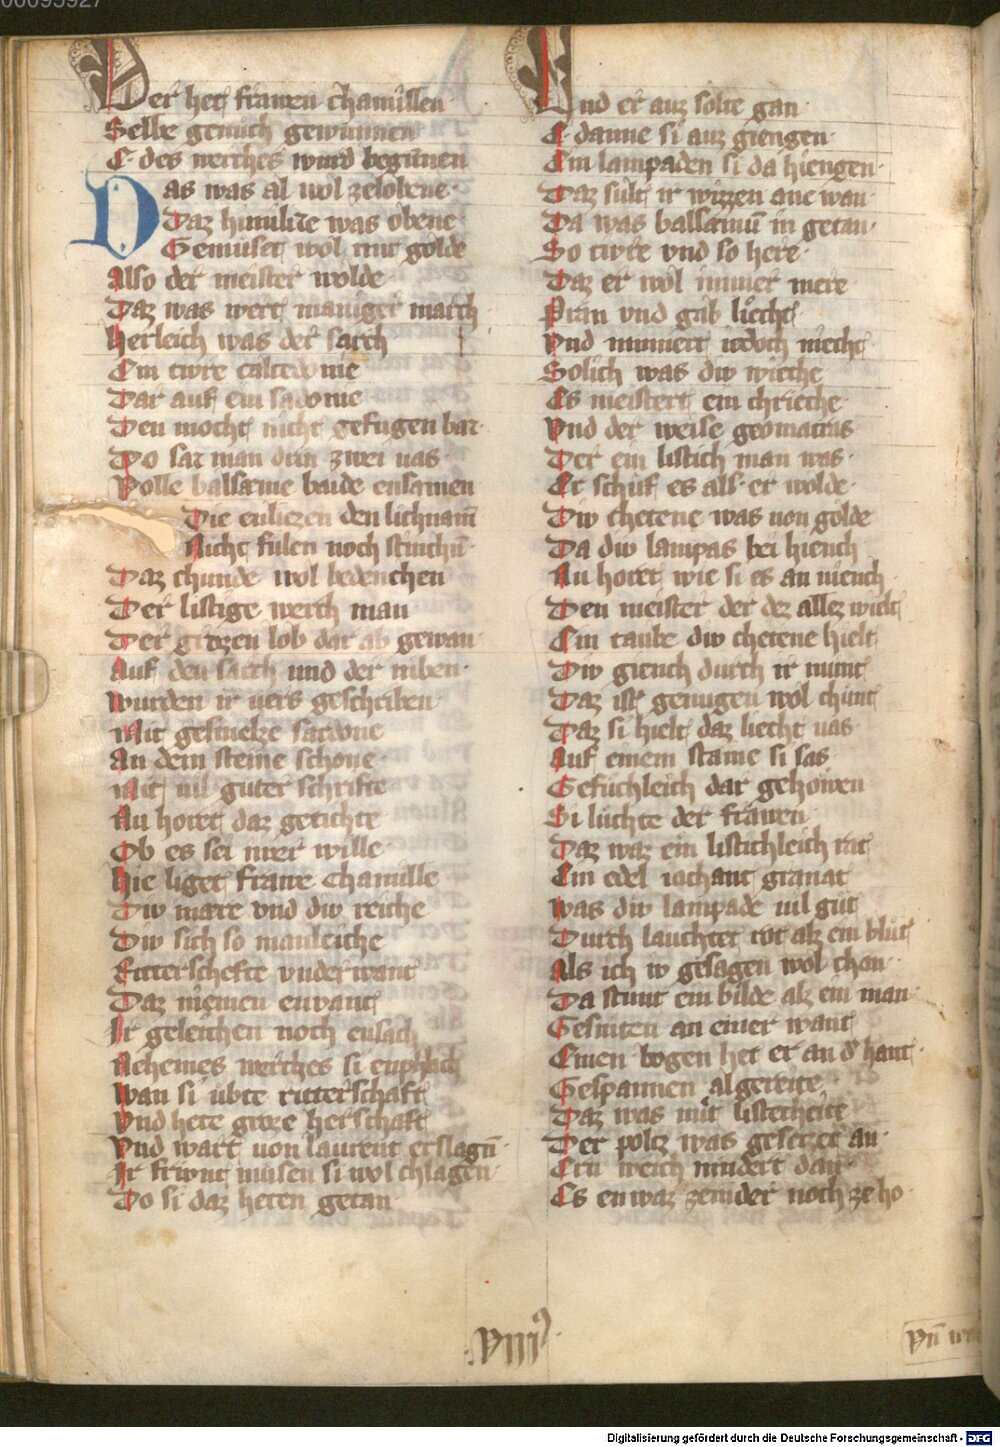 00095927
Der het frawen chamillen
Selbe gemach gewunnen
E des werches wurd begunnen
Das was al wol zelobene
Daz himilize was obene
Gemuset wol mit golde
Also der meister wolde
Daz was wert maniger march
Herleich was der sarch
Ein tiwre calcedonie
Dar auf ein sadonie
Den mocht nicht gefugen bat
Do sat man drin zwei uas
Volle balsame baide ensamen
Die enliezen den lichnam̄
Nicht fulen noch stinchū
Daz chunde wol bedenchen
Der listige werch man
Der grozen lob dar ab gewan
Auf den sarch und der niben
Wurden ir uers geschriben
Mit gesmelze sardone
An dem steine schone
Mit uil guter schrifte
Nu horet daz getichte
Ob es sei iwer wille
Hie liget frawe Chamille
Diw mare vnd diw reiche
Diw sich so manleiche
Ritterschefte vnderwant
Daz niemen envant
Ir geleichen noch ensach
Dcheines werches si enphlach
Wan si ubte ritterschaft
Vnd hete groze herschaft
Vnd wart uon laurent erslagn̄
Ir friwnt musen si wol chlagen
Do si daz heten getan
Und er auz solte gan
E danne si auz giengen
Ein lampaden si da hiengen
Daz sult ir wizzen ane wan
Da was balsamū in getan
So tiwre vnd so here
Daz er wol immer mere
Pran vnd gab liecht
Vnd minnert iedoch niecht
Solich was diw wieche
Es meistert ein chrieche
Vnd der weise geomatras
Der ein listich man was
Er schuf es als er wolde
Diw chetene was uon golde
Da diw lampas bei hiench
Nu horet wie si es an uiench
Den meister der dez allez wielt
Ein taube diw chetene hielt
Diw giench durch ir munt
Daz ist genugen wol chunt
Daz si hielt daz liecht uas
Auf einem staine si sas
Gefuchleich dar gehowen
Si luchte der frawen
Daz waz ein listichleich rat
Ein edel iochant granat
Was diw lampade uil gut
Durch lauchtet rot alz ein blut
Als ich iv gesagen wol chan
Da stunt ein bilde alz ein man
Gesniten an einer want
Einen bogen het er an d' hant
Gespannen al gereite
Daz was mit listecheite
Der poltz was gesetzet an
Ern weich nindert dan
Es enwaz zenider noch ze ho
VIIII⁹
Digitalisierung gefördert durch die Deutsche Forschungsgemeinschaft - DFG